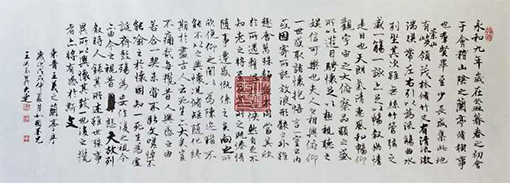 永和九年歲在癸丑暮春之初會
于會稽山陰之蘭亭脩禊事
也羣賢畢至少長咸集此地
有崇山峻領茂林脩竹又有清流激
湍暎帶左右引以為流觴曲水
列坐其次雖無絲竹管弦之
盛一觴一詠亦足以暢敘幽情
是日也天朗氣清惠風和暢仰
觀宇宙之大俯察品類之盛
所以遊目騁懷足以極視聽之
娛信可樂也夫人之相與俯仰
一世或取諸懷抱悟言一室之內
或因寄所託放浪形骸之外雖
趣舍萬殊靜躁不同當其欣
於所遇蹔得於己快然自足不
知老之將至及其所之既惓情
隨事遷感慨係之矣向之所
欣俛仰之間以為陳迹猶不
能不以之興懷況脩短隨化終
期於盡古人云死生亦大矣豈
不痛哉每攬昔人興感之由
若合一契未嘗不臨文嗟悼不
能喻之於懷固知一死生為虛
誕齊彭殤為妄作後之視今
亦由今之視昔悲夫故列
敘時人錄其所述雖世殊事
異所以興懷其致一也後之攬
者亦將有感於斯文